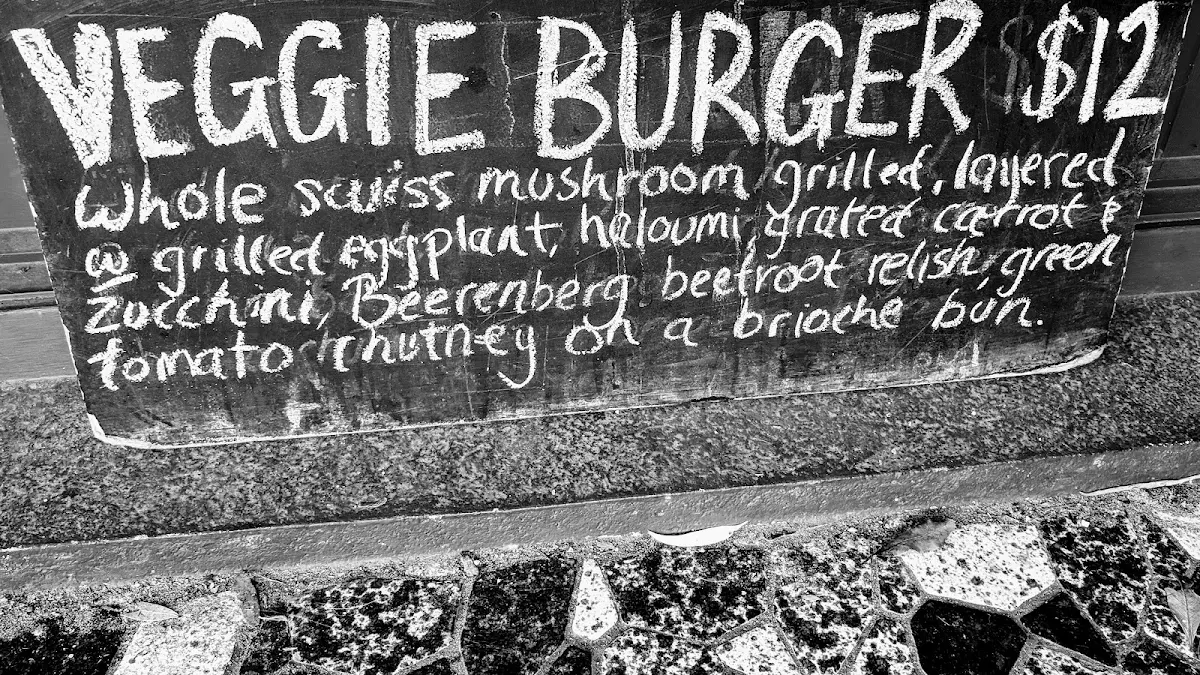 VEGGIE BURGER $12
Whole scwiss mushroom grilled, layered
w grilled eggplant, haloumi grated carrot &
Zucchini, Beerenberg beetroot relish, green
tomato chutney on a brioche bun.